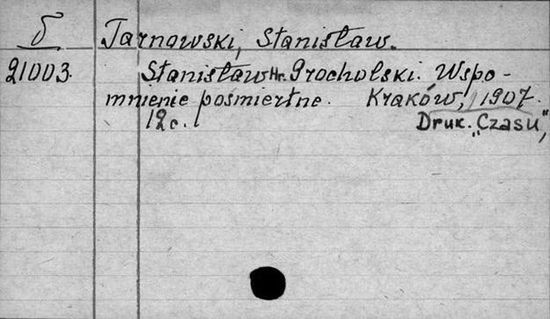 δ Tarnowski, Stanisław.
21003. Stanisław Hr. Grocholski. Wspo-
mnienie pośmiertne. Kraków, 1907.
12c. Druk. "Czasu",